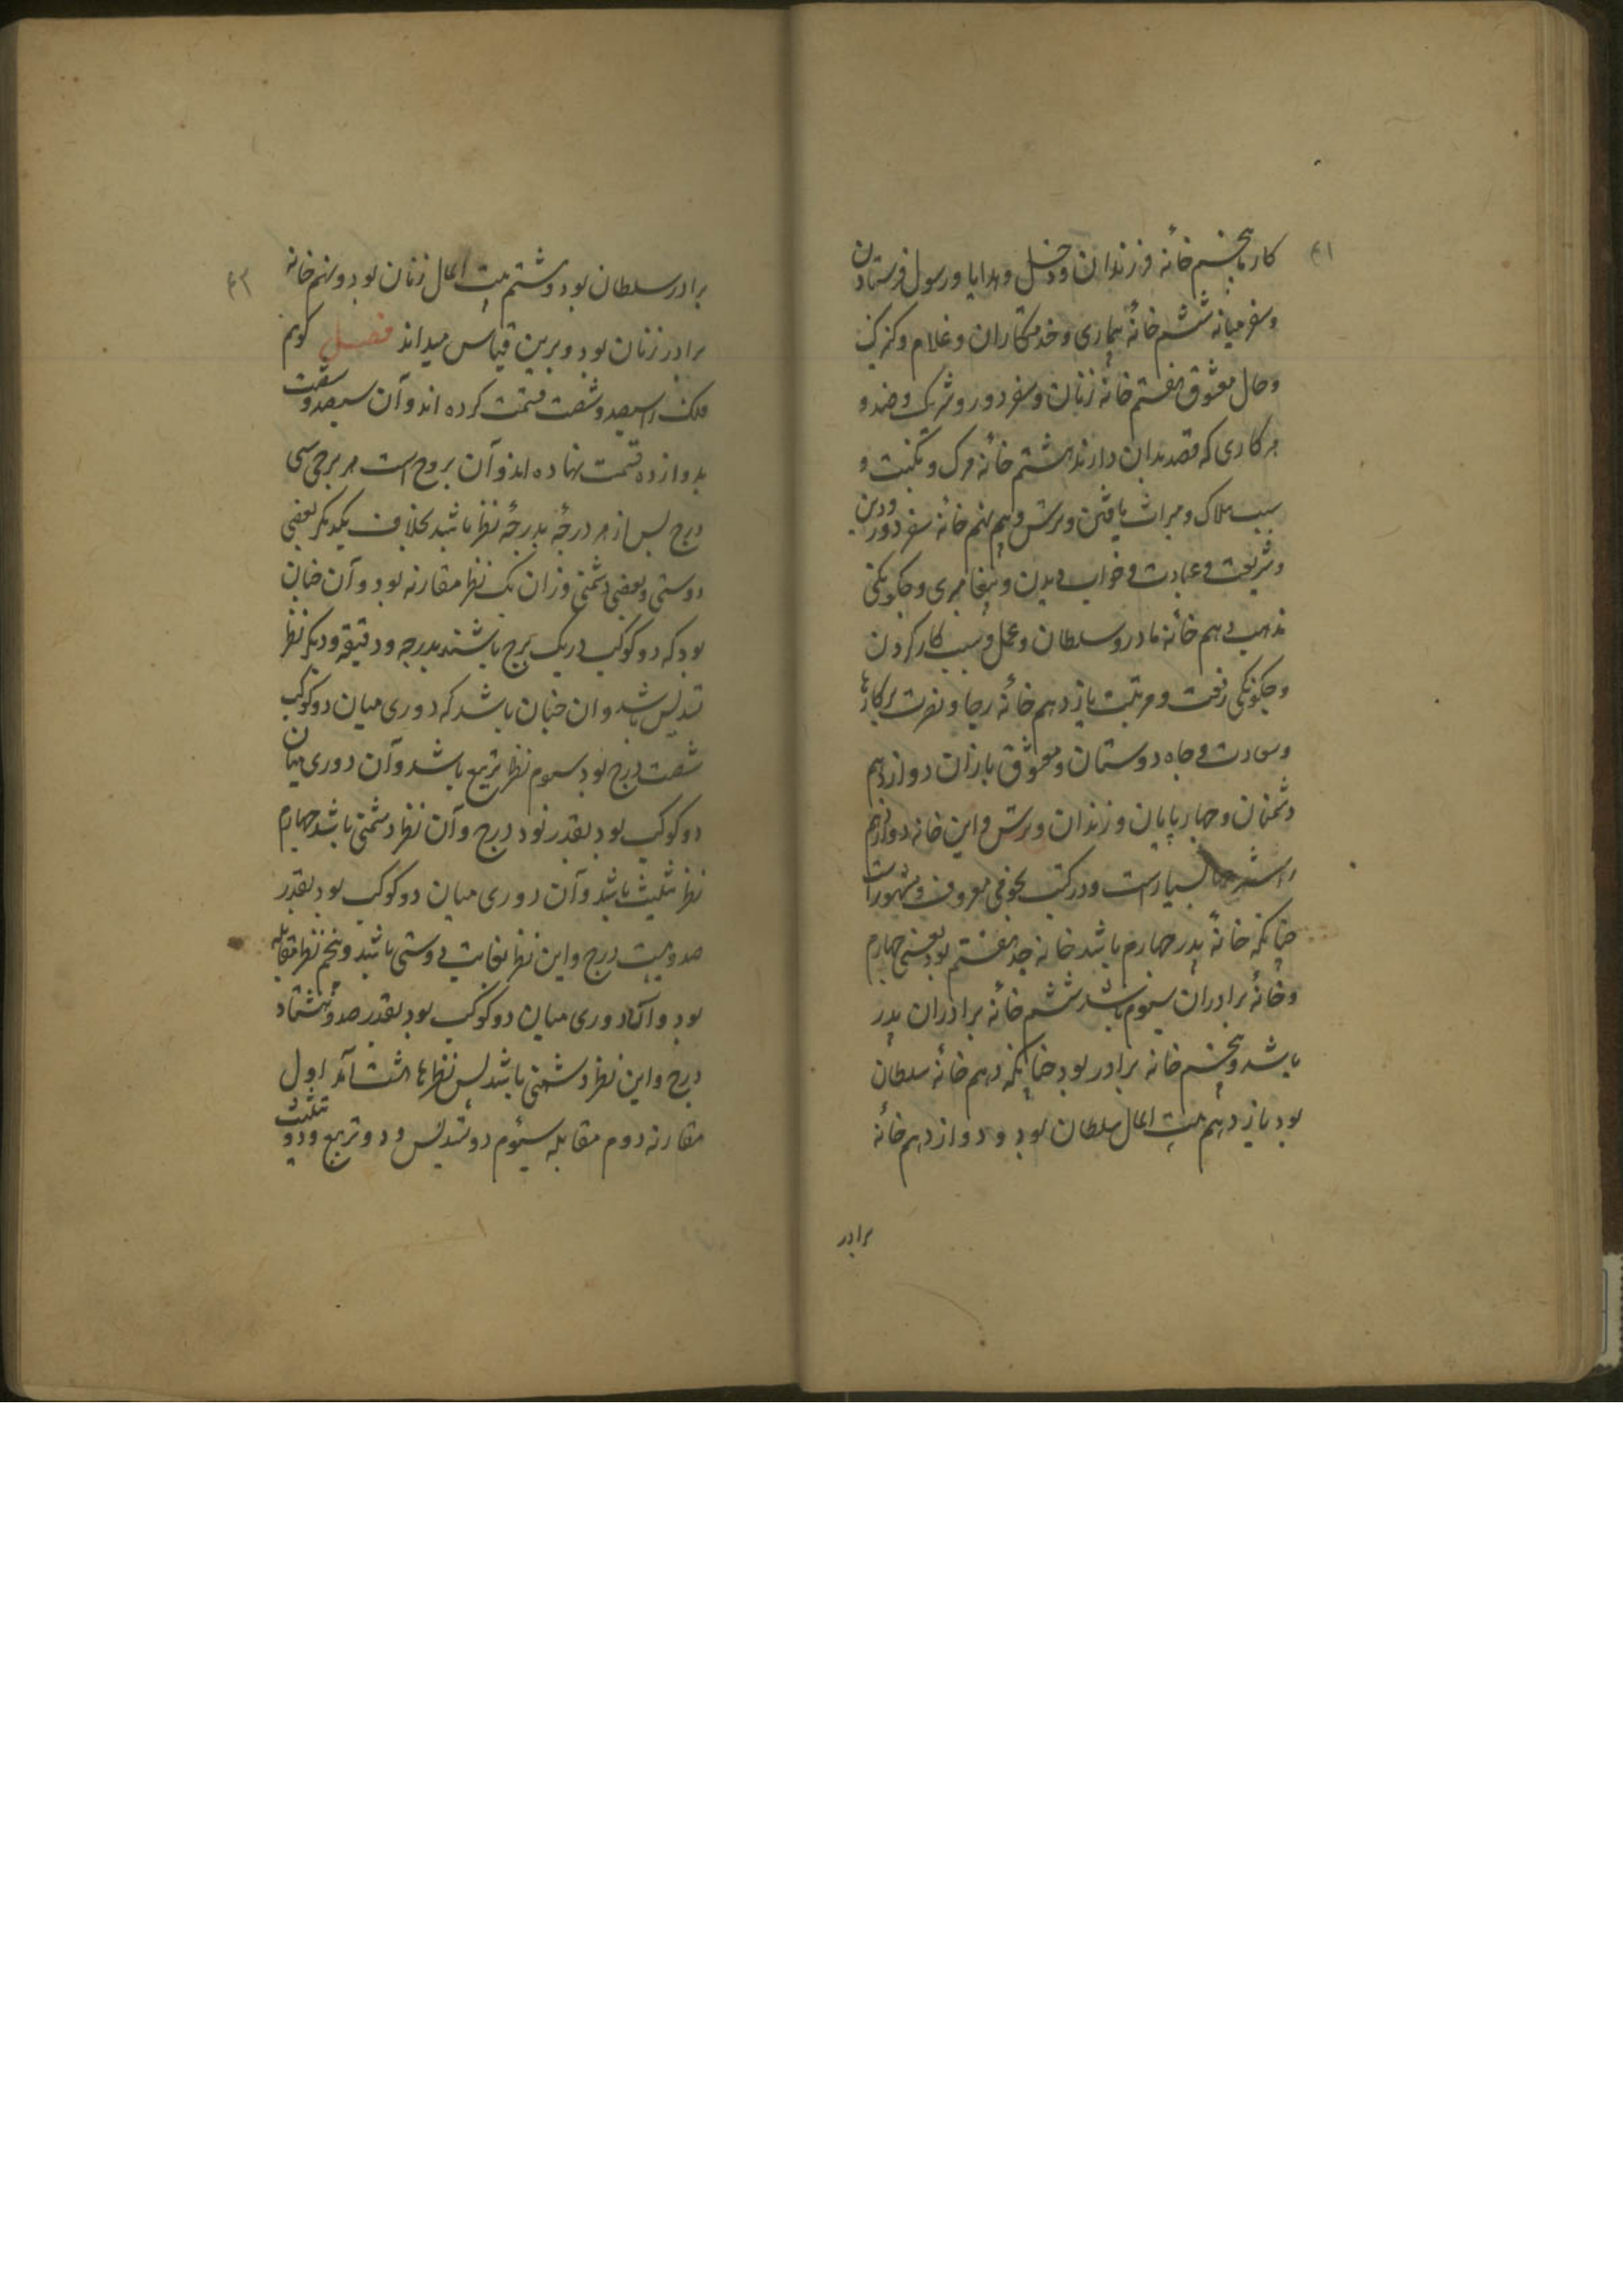 ۴۱
کارها پنجم خانه فرزندان و دخل و هدایا و رسول فرستادن
و سفر میانه ششم خانهٔ بیماری و خدمتکاران و غلام و کنیزک
و حال معشوق هفتم خانه زنان و سفر دور و شریک و ضد و
هر کاری که قصد بدان دارند هشتم خانه مرک و نکبت و
سبب هلاک و میراث یافتن و ترس و بیم نهم خانه سفر دور و دین
و شریعت و عبادت و خواب دیدن و پیغامبری و چکونکی
مذهب دهم خانه مادر و سلطان و عمل و سبب کار کردن
و چکونکی رفعت و مرتبت یازدهم خانه رجا و نصرت بر کارها
و سعادت و جاه دوستان و معشوق بازان دوازدهم
دشمنان و چهارپایان و زندان و ترس و این خانه دوازدهم
را شرحها بسیارست و در کتب نجومی معروف و مشهورست
چنانکه خانهٔ پدر چهارم باشد خانه جد هفتم بود یعنی چهارم
و خانهٔ برادران سیوم باشد ششم خانه برادران پدر
باشد و پنجم خانه برادر بود چنانکه دهم خانه سلطان
بود یازدهم بیت المال سلطان بود و دوازدهم خانه
برادر
۴۲
برادر سلطان بود و هشتم بیت المال زنان بود و نهم خانه
برادر زنان بود و برین قیاس میداند فصل کویم
فلک را سیصد و شصت قسمت کرده اند و آن سیصد و شصت
بدوازده قسمت نهاده اند و آن بروج است هر برجی سی
درج پس از هر درجه بدرجه نظر باشد بخلاف یکدیکر بعضی
دوستی و بعضی دشمنی و زان یک نظر مقارنه بود و آن چنان
بود که دو کوکب در یک برج باشند بدرجه و دقیقه و دیکر نظر
تسدیس باشد و ان چنان باشد که دوری میان دو کوکب
شصت درج بود سیوم نظر تربیع باشد و آن دوری میان
دو کوکب بود بقدر نود درج و آن نظر دشمنی باشد چهارم
نظر تثلیث باشد و آن دوری میان دو کوکب بود بقدر
صد و بیست درج و این نظر بغایت دوستی باشد و پنجم نظر مقابله
بود و آن دوری میان دو کوکب بود بقدر صد و هشتاد
درج و این نظر دشمنی باشد پس نظرها هشت آمد اول
مقارنه دوم مقابله سیوم دو تسدیس و دو تربیع و دو تثلیث